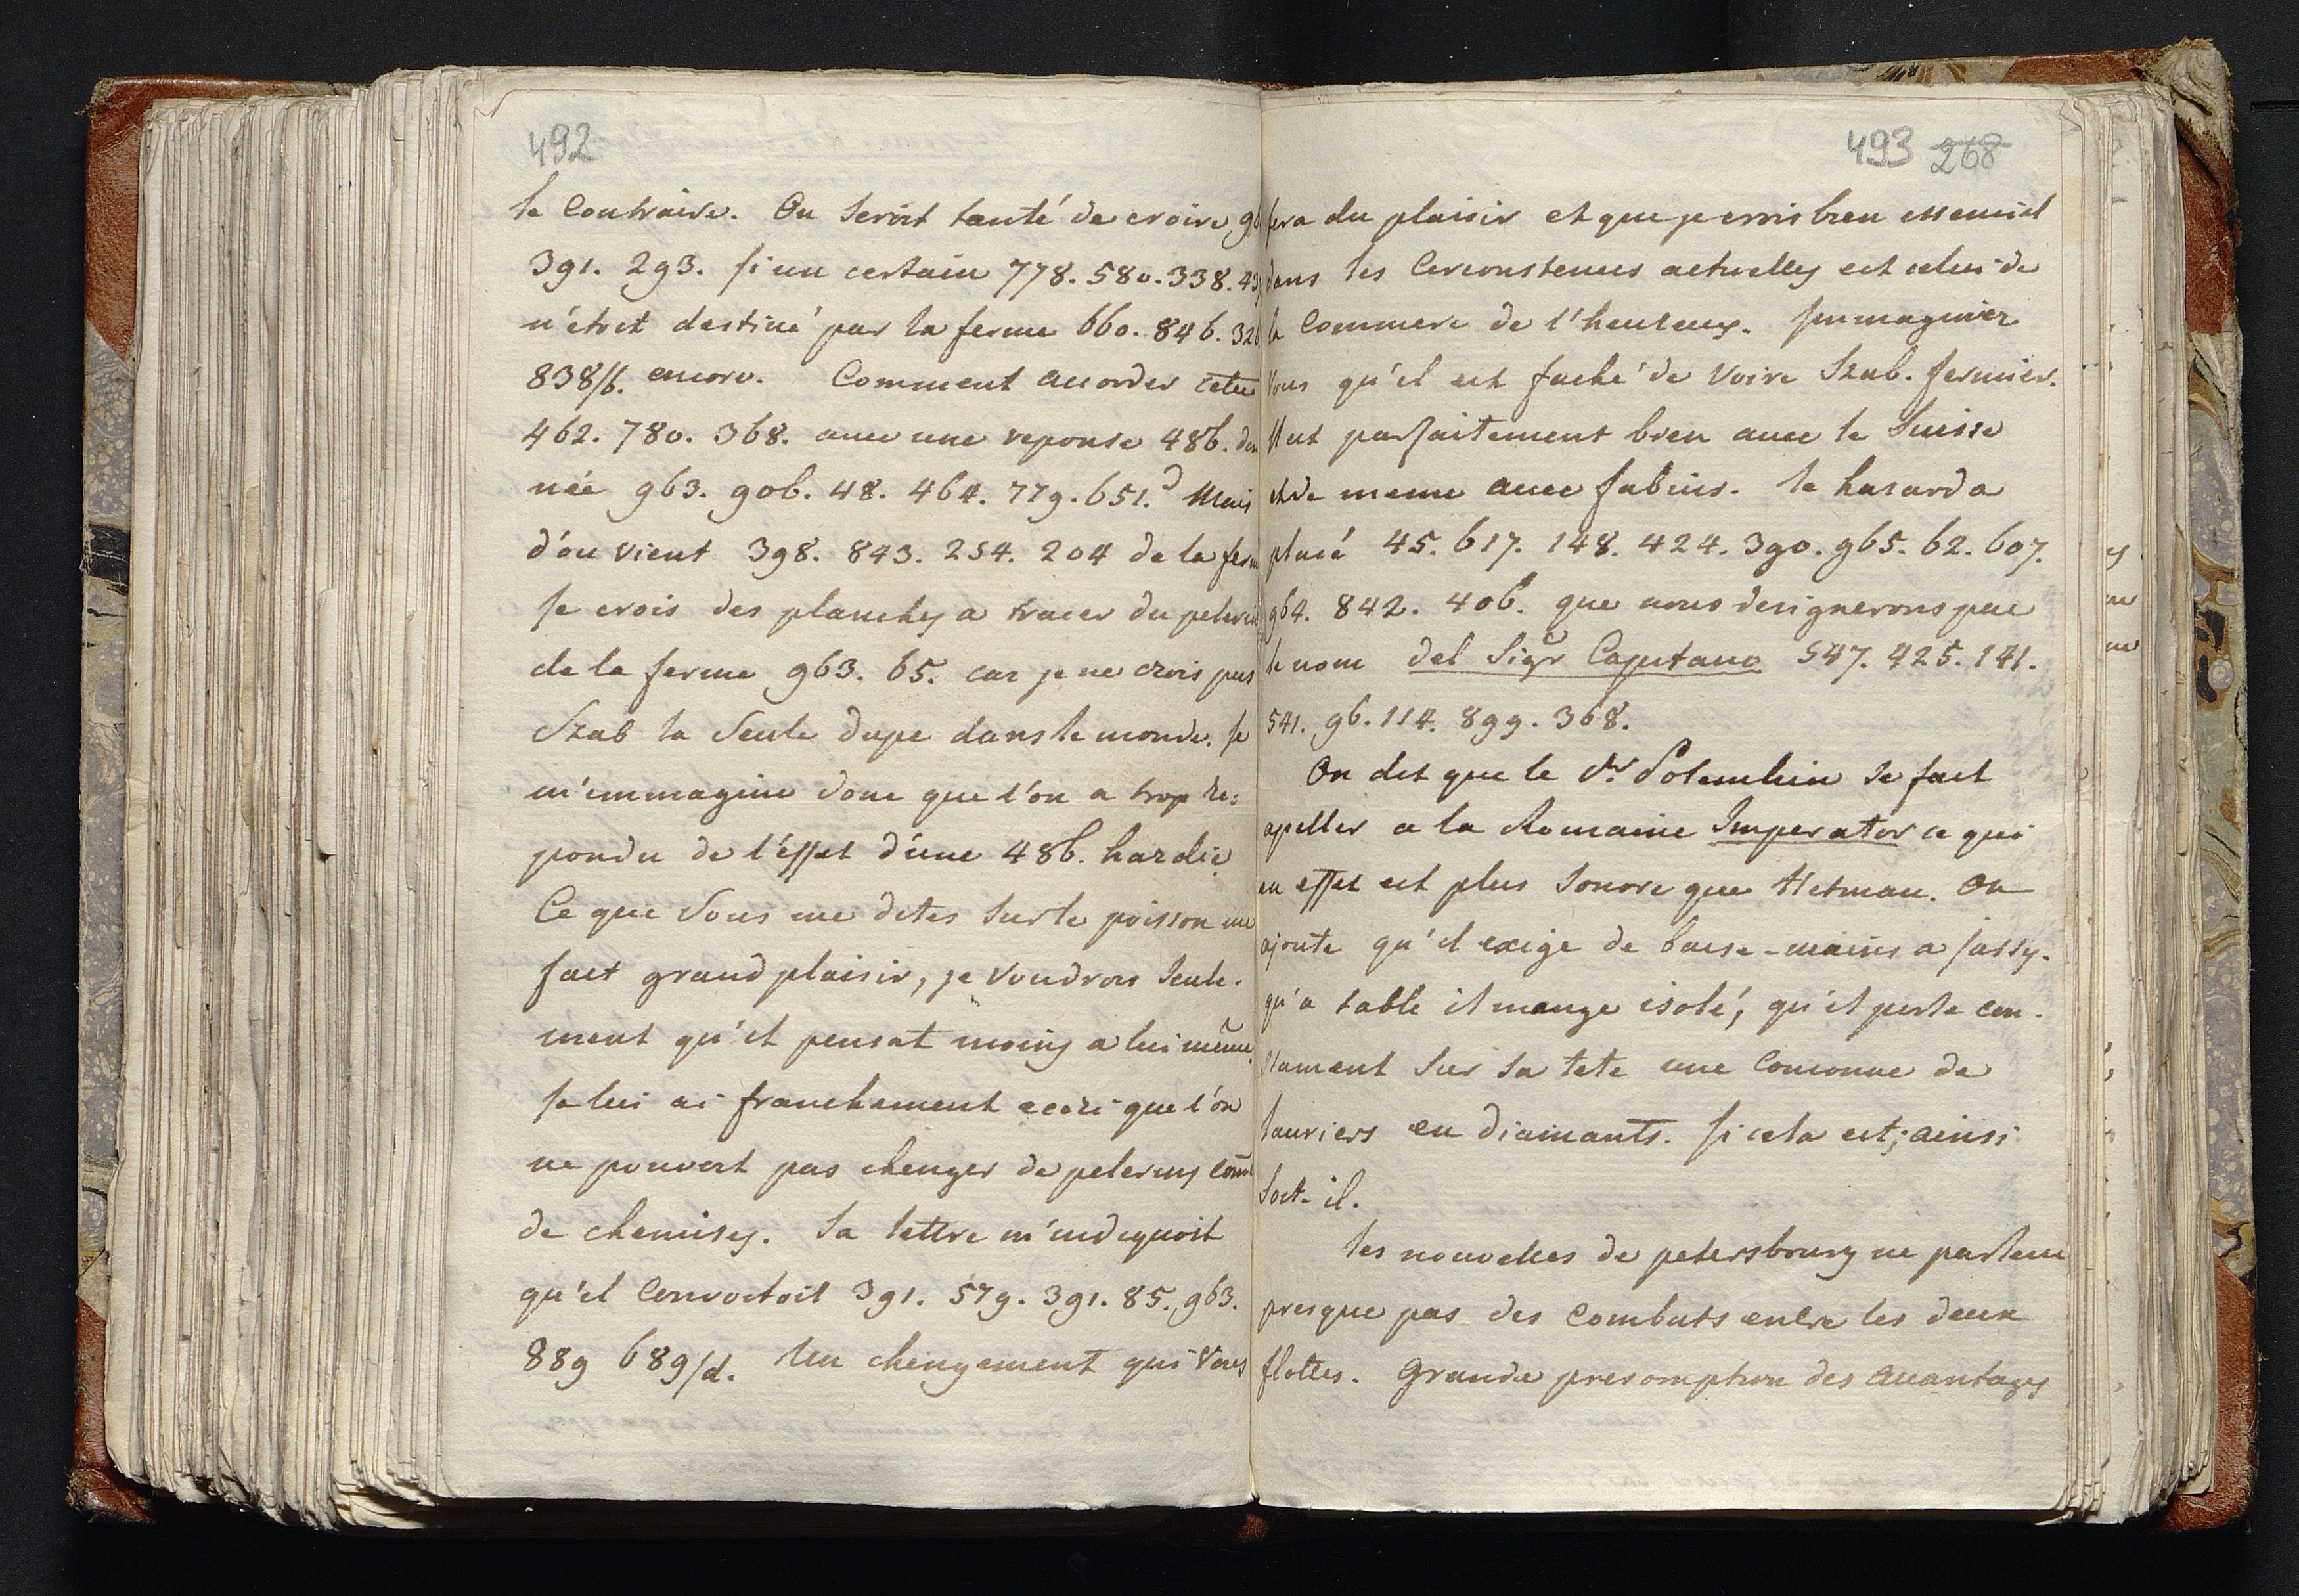 492
le Contraire. On seroit tanté de croire
391. 293. si un certain 778. 580. 338.
n'étoit destiné par la ferme 660. 846. 
838/b. encore. Comment accorder cette
462. 780. 368. avec une reponse 486. don
née 963. 906. 48. 464. 779. 651. Mais
d'ou vient 398. 843. 254. 204 de la
Je crois des planches a tracer du
de la ferme 963. 65. car je ne crois pas
Szab la seule dupe dans le monde. Je
m'immagine donc que l'on a trop re:
pondu de l'éffet d'une 486. hardie
Ce que Vous me dites sur le poisson me
fait grand plaisir, je voudrois seule-
ment qu'il pensat moins a lui même.
Je lui ai franchement ecrit que l'on
ne pouvoit pas changer de pelerins com̃e
de chemises. Sa lettre m'indiquoit
qu'il Convoitoit 391. 579. 391. 85. 963.
889 689/d. Un changement qui Vous
493 268
fera du plaisir et que je crois bien essentiel
dans les Circonstences actuelles est celui de
le Commerce de l'heuteux. Immaginez
Vous qu'il est faché de Voire Szab. fermier.
Il est parfaitement bien avec le Suisse
et de meme avec fabius. le hasard a
placé 45. 617. 148. 424. 390. 965. 62. 607.
964. 842. 406. que nous designerons par
le nom del Sigr Capitano 547. 425. 141.
541. 96. 114. 899. 368.
On dit que le Potemkin se fait
apeller a la Romaine Imperator ce qui
en effet est plus sonore que Hetman. On
ajoute qu'il exige de baise-mains a Jassy.
qu'a table il mange isolé, qu'il porte con-
stament sur sa tete une Couronne de
lauriers en diamants. si cela est; ainsi
soit-il.
les nouvelles de petersbourg ne parlent
presque pas des Combats entre les deux
flottes. Grande presomption des avantages